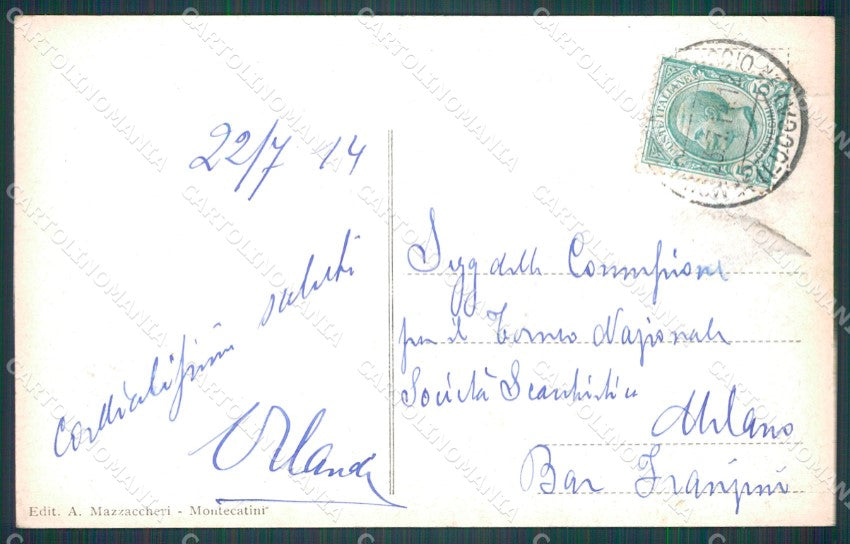 22/7 14
Cordialissimi saluti
Orlandi
Sigg della Commissione
per il Torneo Nazionale
Società Scacchistica
Milano
Bar Franzini
Edit. A. Mazzaccheri - Montecatini
POSTE ITALIANE
CARTOLINOMANIA